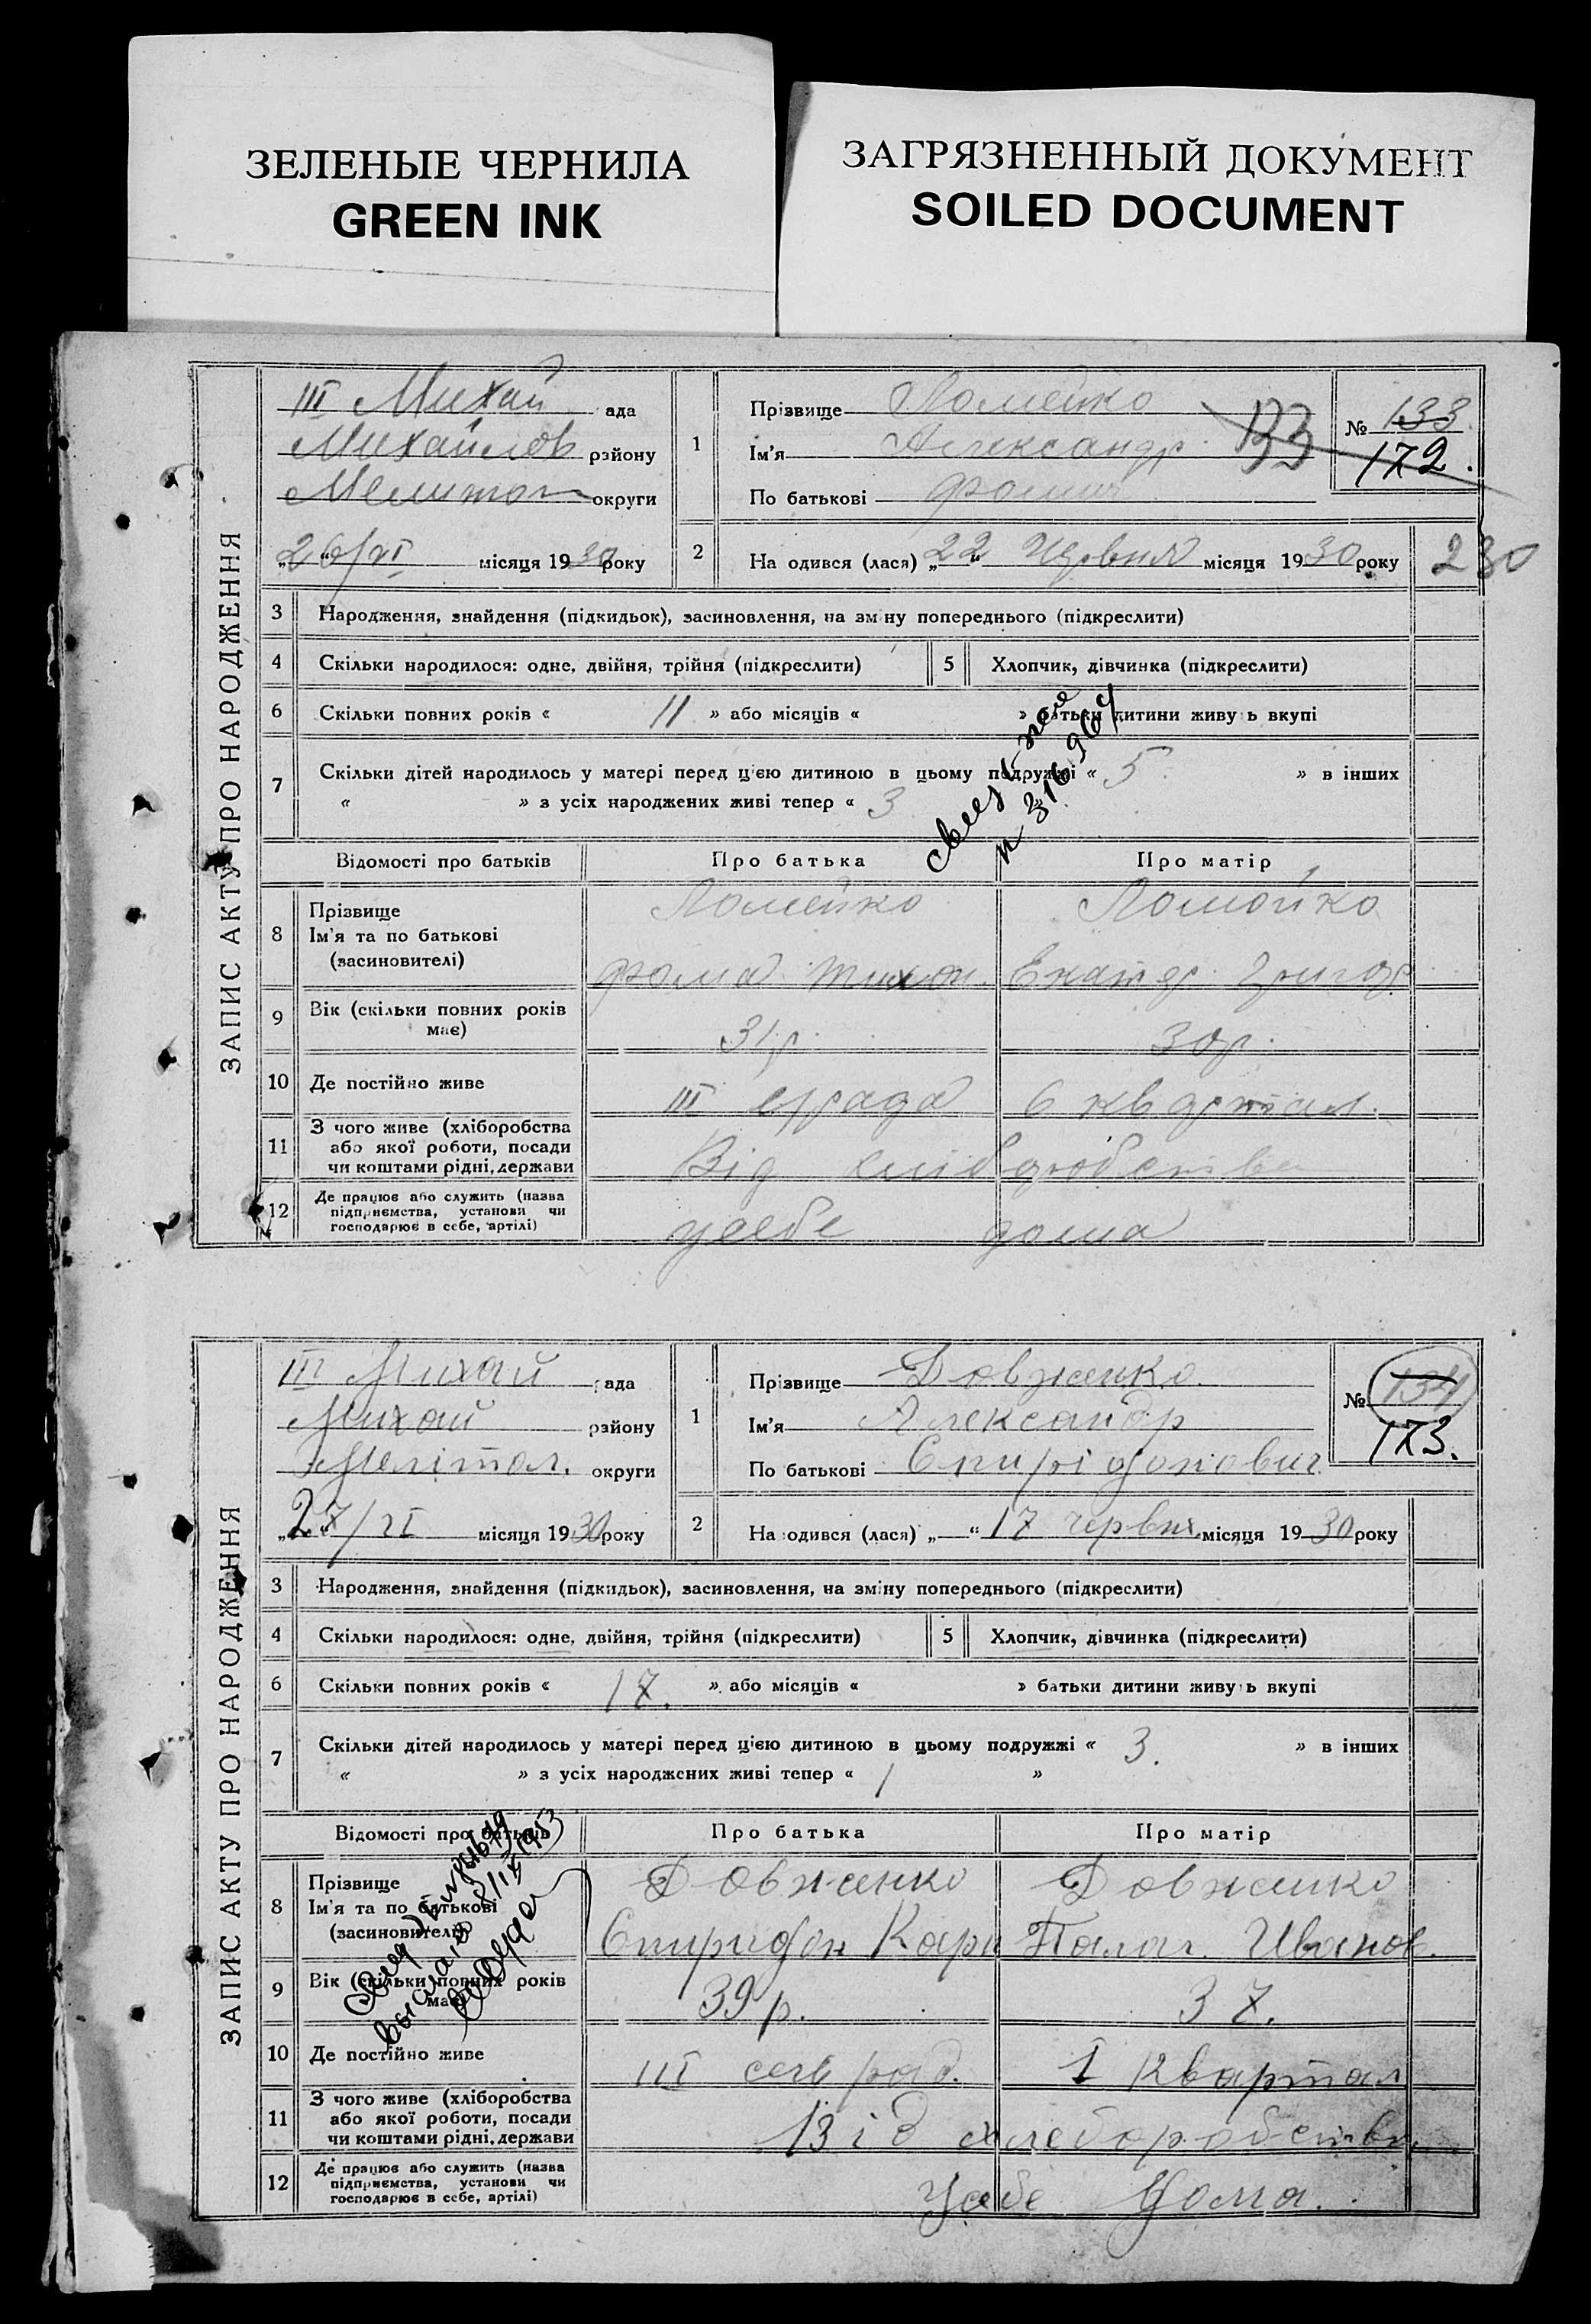 ЗЕЛЕНЫЕ ЧЕРНИЛА
GREEN INK
ЗАГРЯЗНЕННЫЙ ДОКУМЕНТ
SOILED DOCUMENT
ЗАПИС АКТУ ПРО НАРОДЖЕННЯ
III Михай ада
Михайлов району
Мелитоп округи
„26/VI місяця 1930 року
1 Прізвище Ломейко
Ім'я Александр
По батькові Фомич
133
№ 133
172.
2 На одився (лася) „22“ Червня місяця 1930 року
230
3 Народження, знайдення (підкидьок), засиновлення, на зм ну попереднього (підкреслити)
4 Скільки народилося: одне, двійня, трійня (підкреслити)
5 Хлопчик, дівчинка (підкреслити)
6 Скільки повних років « 11 » або місяців « » батьки дитини живу ь вкупі
7 Скільки дітей народилось у матері перед цією дитиною в цьому подружжі « 5 » в інших
« » з усіх народжених живі тепер « 3 »
Відомості про батьків Про батька Про матір
8 Прізвище
Ім'я та по батькові
(засиновителі)
Ломейко Ломойко
Фома Тихон. Екатер. Григор.
9 Вік (скільки повних років
має)
31 р. 30 р.
10 Де постійно живе III с/рада 6 квартал.
11 З чого живе (хліборобства
або якої роботи, посади
чи коштами рідні, держави
Від хліборобства
12 Де працює або служить (назва
підприємства, установи чи
господарює в себе, артілі)
усебе дома
ЗАПИС АКТУ ПРО НАРОДЖЕННЯ
III Михай ада
Михай району
Мелітоп. округи
„27/VI місяця 1930 року
1 Прізвище Довженко
Ім'я Александр
По батькові Спирідонович
№ 134
173.
2 На одився (лася) „ “ 17 червня місяця 1930 року
3 Народження, знайдення (підкидьок), засиновлення, на зміну попереднього (підкреслити)
4 Скільки народилося: одне, двійня, трійня (підкреслити)
5 Хлопчик, дівчинка (підкреслити)
6 Скільки повних років « 17. » або місяців « » батьки дитини живу ь вкупі
7 Скільки дітей народилось у матері перед цією дитиною в цьому подружжі « 3. » в інших
« » з усіх народжених живі тепер « 1 »
Відомості про батьків Про батька Про матір
8 Прізвище
Ім'я та по батькові
(засиновителі)
Довженко Довженко
Спиридон Карп Палаг. Иванов.
9 Вік (скільки повних років
має)
39 р. 37.
10 Де постійно живе III сель рад. 1 квартал
11 З чого живе (хліборобства
або якої роботи, посади
чи коштами рідні, держави
Від хлеборобства
12 Де працює або служить (назва
підприємства, установи чи
господарює в себе, артілі)
Усебе Дома.